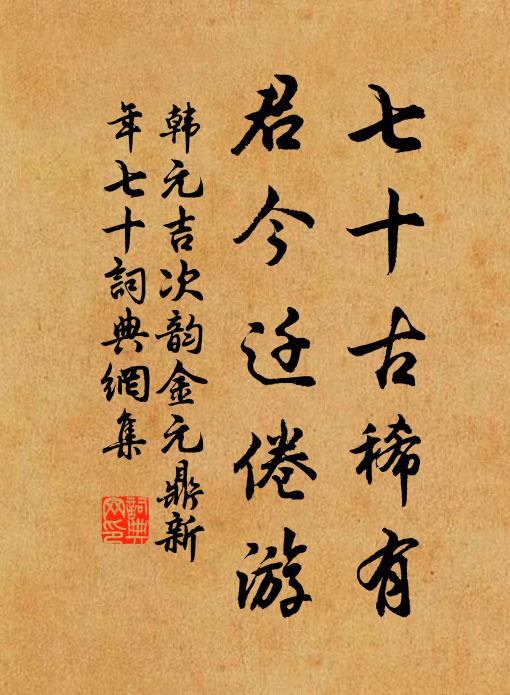 七十古稀有
君今迁倦游
韩元吉次韵金元鼎新
年七十詞典網集
詞典
网印